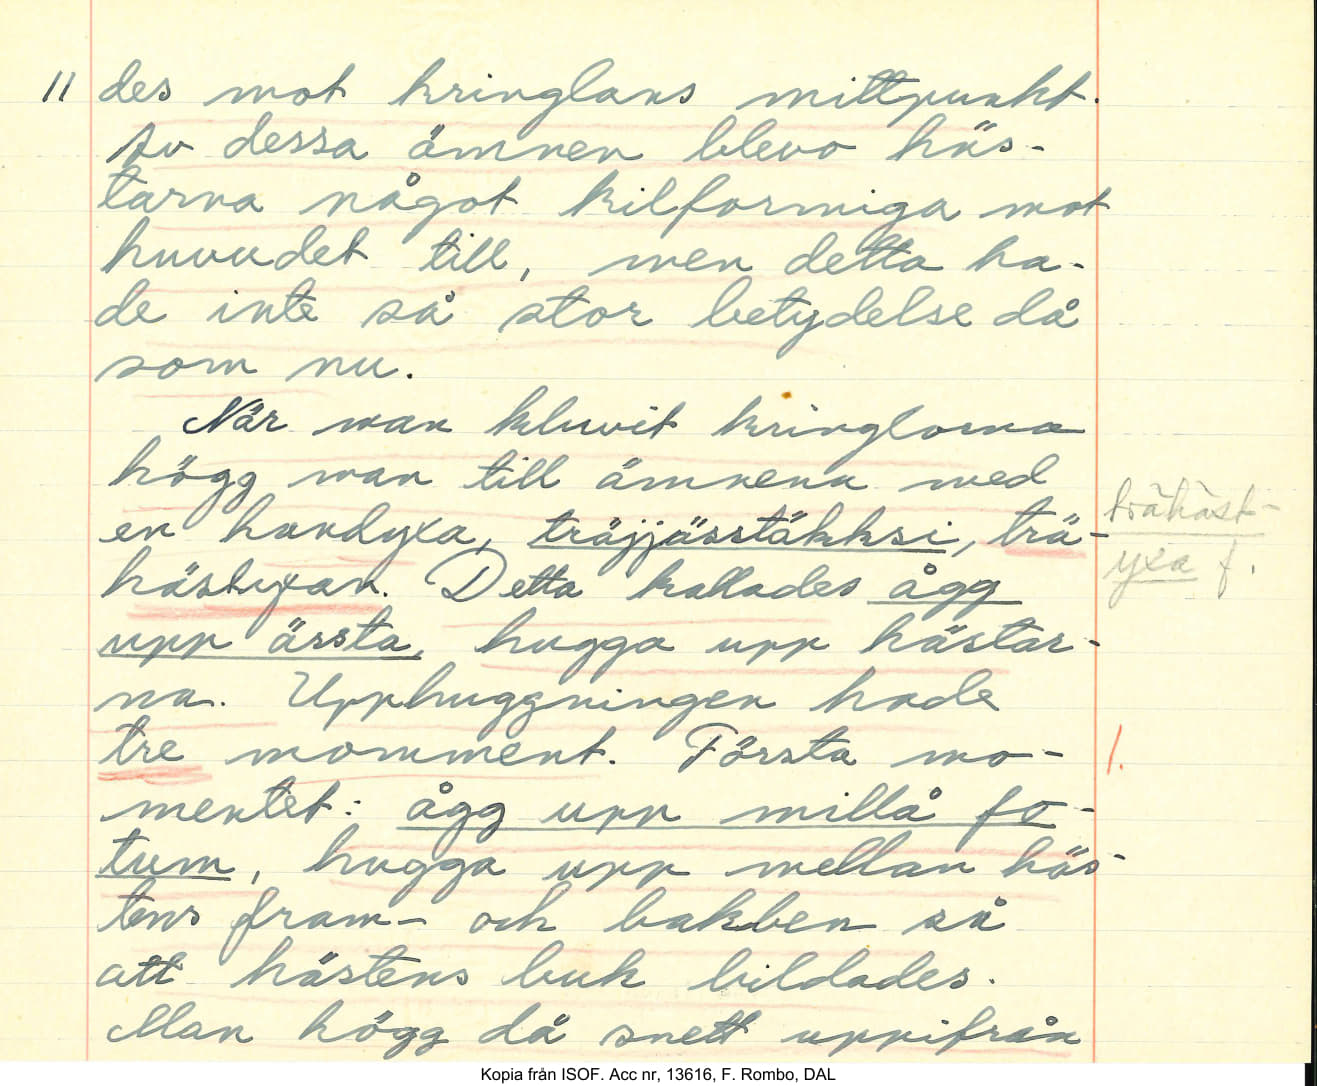 11 des mot kringlans mittpunkt.
Av dessa ämnen blevo häs-
tarna något kilformiga mot
huvudet till, men detta ha-
de inte så stor betydelse då
som nu.
När man kluvit kringlorna
högg man till ämnena med
en handyxa, träjjässtäkksi, trä-
hästyxan. Detta kallades ågg
upp ässta, hugga upp hästar-
na. Upphuggningen hade
tre momment. Första mo-
mentet: ågg upp millå fo-
tum, hugga upp mellan häs-
tens fram- och bakben så
att hästens buk bildades.
Man högg då snett uppifrån
trähäst-
yxa f.
1.
Kopia från ISOF. Acc nr, 13616, F. Rombo, DAL